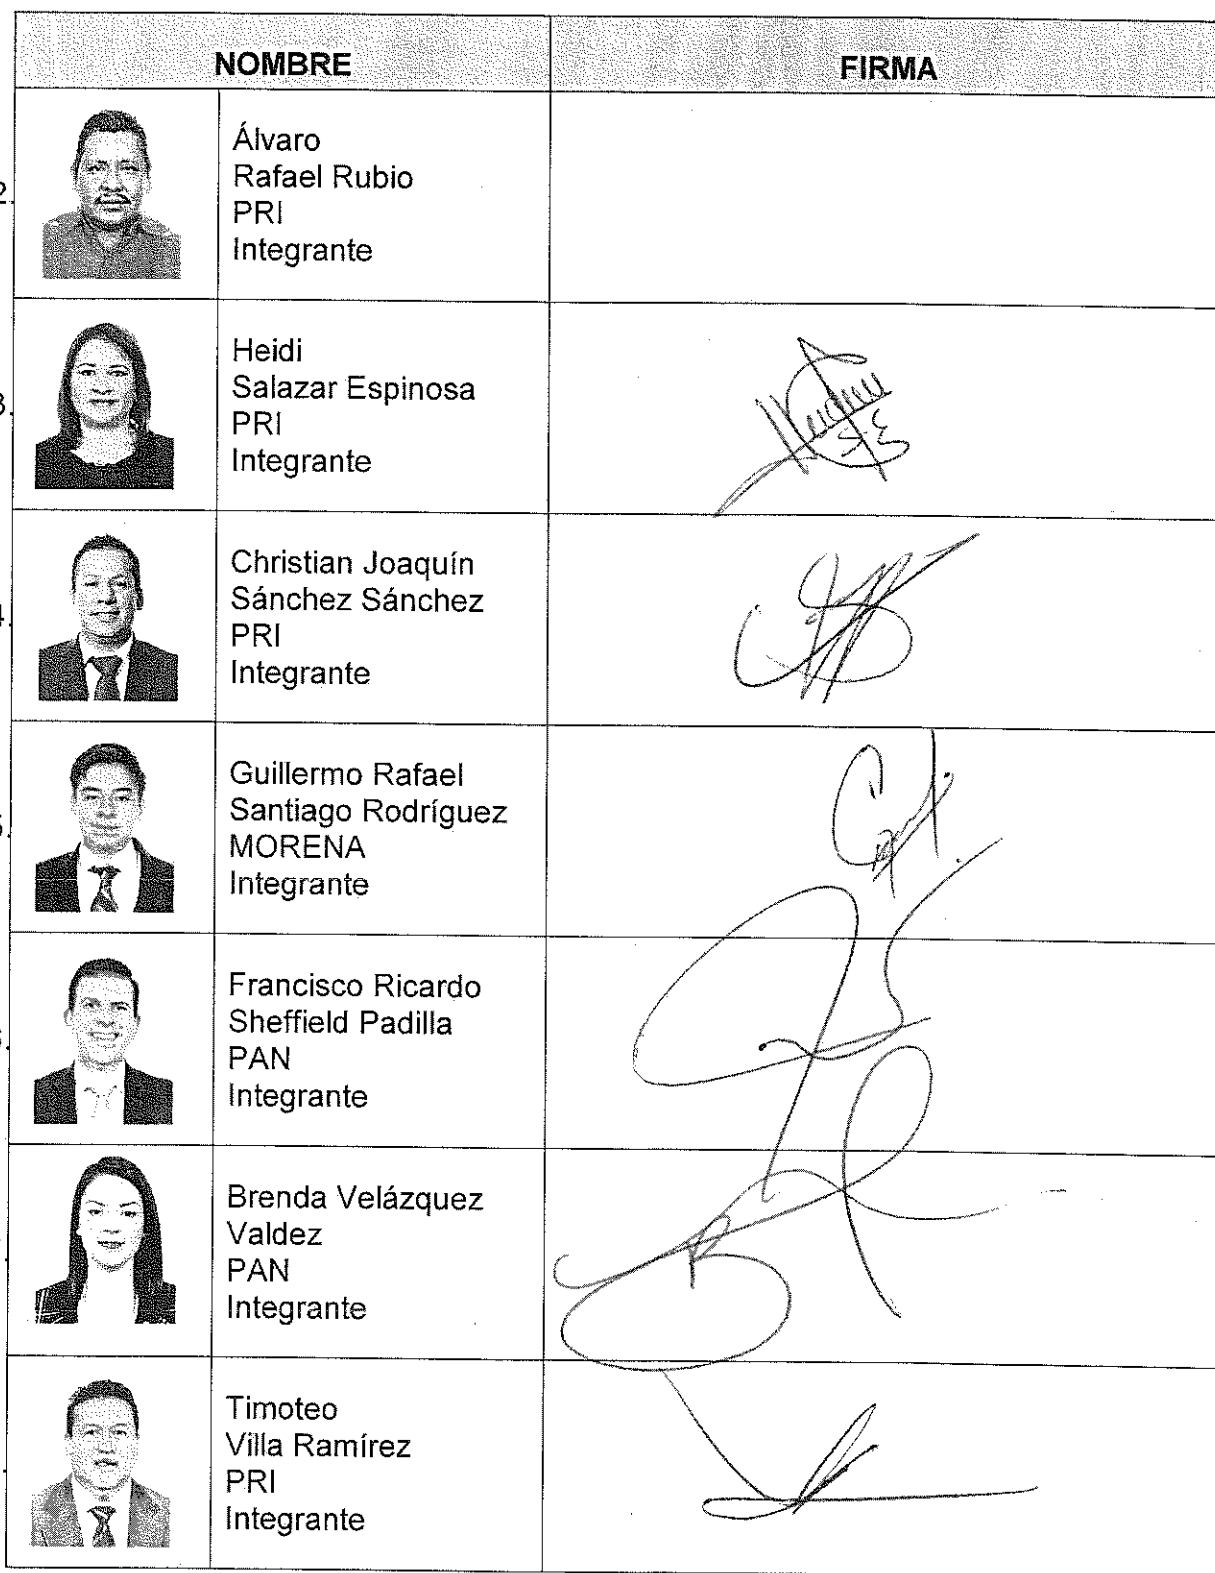 NOMBRE FIRMA
2.
Álvaro
Rafael Rubio
PRI
Integrante
3.
Heidi
Salazar Espinosa
PRI
Integrante
Christian Joaquín
Sánchez Sánchez
PRI
Integrante
Guillermo Rafael
Santiago Rodríguez
MORENA
Integrante
Francisco Ricardo
Sheffield Padilla
PAN
Integrante
Brenda Velázquez
Valdez
PAN
Integrante
Timoteo
Villa Ramírez
PRI
Integrante